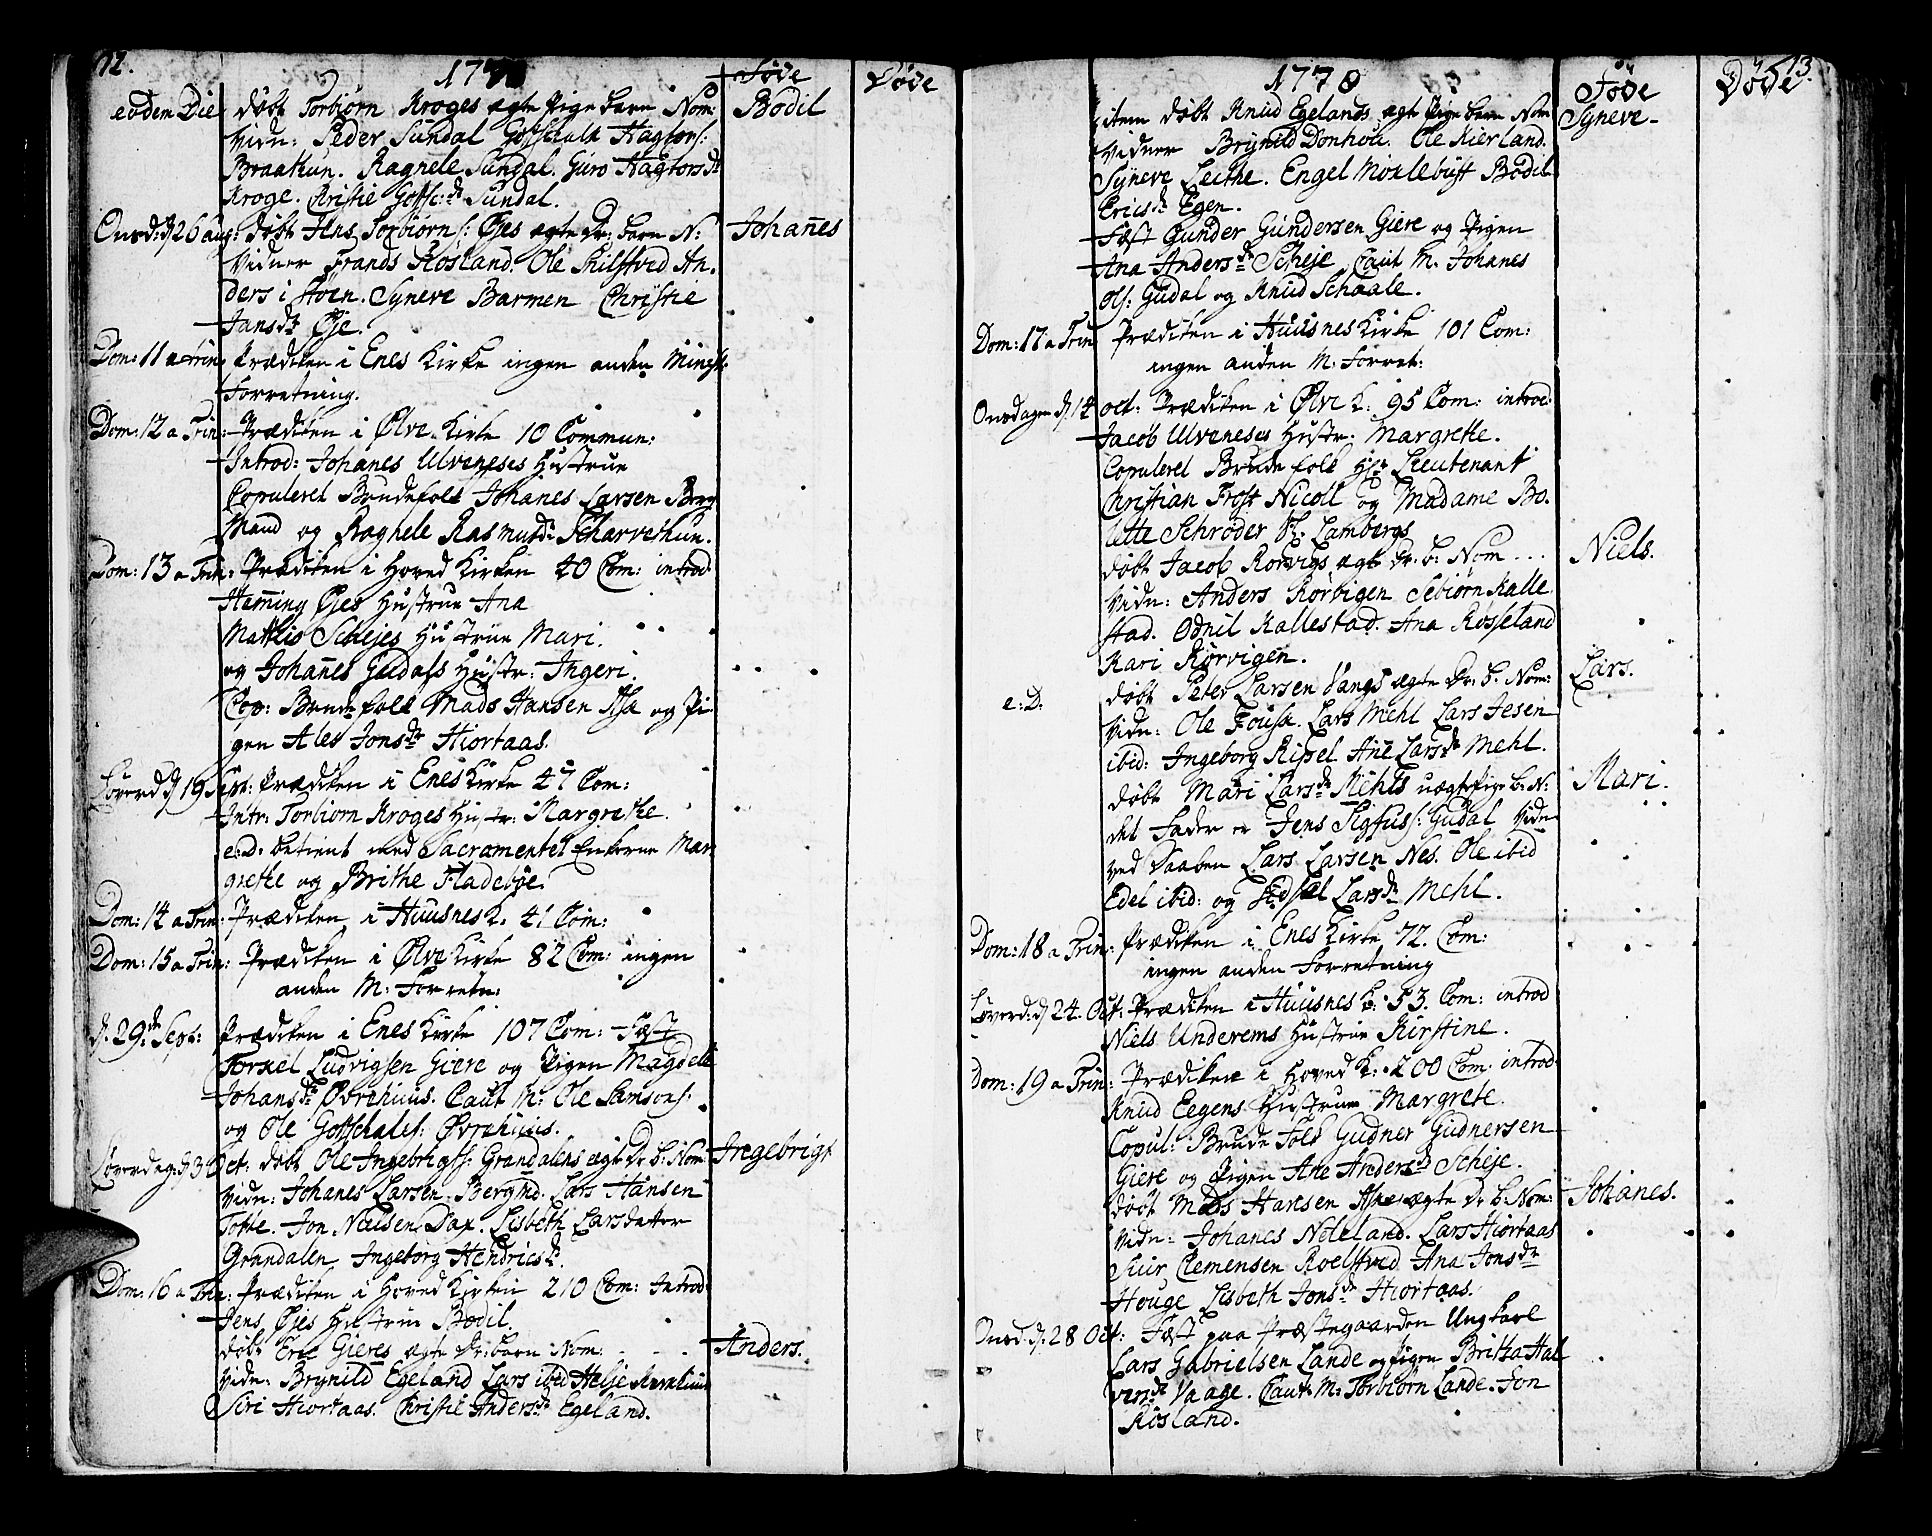 12.
177
Föde
Döde
eodem Die döbt Torbiörn Kroges ægte Pige barn Nom: Bodil
Vidn: Peder Sundal Gotschalk Hagtors:
Braathun. Ragnele Sundal. Guro Hagtorsdr
Kroge. Christie Gotsc:dr Sundal.
Onsd: d 26 aug: döbt Jens Torbiörns: Øjes ægte Dr: barn N: Johanes
Vidner Frands Røsland. Ole Skilstved An-
ders i Støen. Syneve Barmen Christie
Jansdr Øje.
Dom: 11 a Trin: Prædiken i Enes Kirke ingen anden Minist:
Forretning.
Dom: 12 a Trin: Prædiken i Ølve Kirke 10 Commun:
Introd: Johanes Ulveneses Hustrue
Copuleret Brudefolk Johanes Larsen Berg
Mand og Ragnele Rasmusdr Scharvethun.
Dom: 13 a Trin: Prædiken i Hoved Kirken 40 Com: introd
Heming Øjes Hustrue Ana
Mathis Schejes Hustrue Mari.
og Johanes Gudals Hustr: Ingeri.
Cop: Brude folk Mads Hansen og Pi-
gen Ales Jonsdr Hiortaas.
Löverd: d 19 Sept: Prædiken i Enes Kirke 47 Com:
Intr: Torbiörn Kroges Hustr: Margrethe.
e:D: betient med Sacramentet Enkerne Mar
grethe og Brithe Fladebøe.
Dom: 14 a Trin: Prædiken i Huusnes K. 41 Com:
Dom: 15 a Trin: Prædiken i Ølve Kirke 82 Com: ingen
anden M: Forretn:
d. 29de Sept: Prædiken i Enes Kirke 107 Com: Fæst
Torkel Ludvigsen Giere og Pigen Magdele
Johansdr Øvrehuus. Caut M: Ole Samsons:
og Ole Gotschalcs: Øvrehuus.
Löverdag d 3 Oct: döbt Ole Ingebrigts: Grandalens ægte Dr b: Nom: Ingebrigt
Vidn: Johanes Larsen Bergmd. Lars Hansen
Totte. Jon Neelsen Dax. Lisbeth Larsdatter
Grandalen Ingeborg Hendricsdr.
Dom: 16 a Trin: Prædiken i Hoved Kirken 210 Com: Introd:
Jens Øjes Hustrue Bodil.
döbt Eric Gieres ægte Dr: barn Nom: Anders.
Vidn: Brynild Egeland Lars ibid Helje
Siri Hiortaas. Christie Andersdr Egeland.
13.
1770
Föde
Döde
item döbt Knud Egelands ægte Pige barn Nom Syneve
Vidner Brynild Donhou. Ole Kierland.
Syneve Leithe. Engel Moxlebust Bodil
Ericsdr Egen.
Fæst Gunder Gundersen Giere og Pigen
Ana Andersdr Scheje Caut M. Johanes
Ols: Gudal og Knud Schaale.
Dom: 17 a Trin Prædiken i Huusnes Kirke 101 Com:
ingen anden M. Forret:
Onsdagen d. 14 oct: Prædiken i Ølve K: 95 Com: introd:
Jacob Ulveneses Hustr. Margrethe.
Copuleret Brude folk Hr Lieutenant
Christian Frost Nicoll og Madame Bo-
lette Schrøder Lambergs
döbt Jacob Rorvigs ægte Dr: b: Nom ... Niels.
Vidn: Anders Rørvigen Sebiørn Kalle
stad. Odnil Kallestad. Ana Røsseland
Kari Rørvigen.
e:D. döbt Peter Larsen Vangs ægte Dr. b. Nom: Lars.
Vidn: Ole Fousk. Lars Mehl Lars Jesen
ibid: Ingeborg Ripel Ane Larsdr Mehl.
döbt Mari Larsdr Mehls uægte Pige b: N: Mari.
det Fader er Jens Sigfuss: Gudal Vidn
ved Daaben Lars Larsen Nes. Ole ibid
Edel ibid: og Larsdr Mehl.
Dom: 18 a Trin: Prædiken i Enes Kirke 72. Com:
ingen anden Forretning
Löverd: d 24. Oct: Prædiken i Huusnes K. 53. Com: introd
Niels Underems Hustrue Kirstine.
Dom: 19 a Trin: Prædiken i Hoved K: 200 Com: introd:
Knud Eegens Hustrue Margrete.
Copul: Brude Folk Gudner Gudnersen
Giere og Pigen Ane Andersdr Scheje.
döbt Mads Hansen ægte Dr b: Nom: Johanes.
Vidn: Johanes Neteland. Lars Hiortaas
Siur Clemensen Roelstved Ana Jonsdr
Houge Lisbeth Jonsdr Hiortaas.
Onsd. d. 28 Oct: Fæst paa Præstegaarden Ungkarl
Lars Gabrielsen Lande og Pigen Britha Hal
versdr Vaage. Caut: M: Torbiörn Lande. Jon
Rösland.